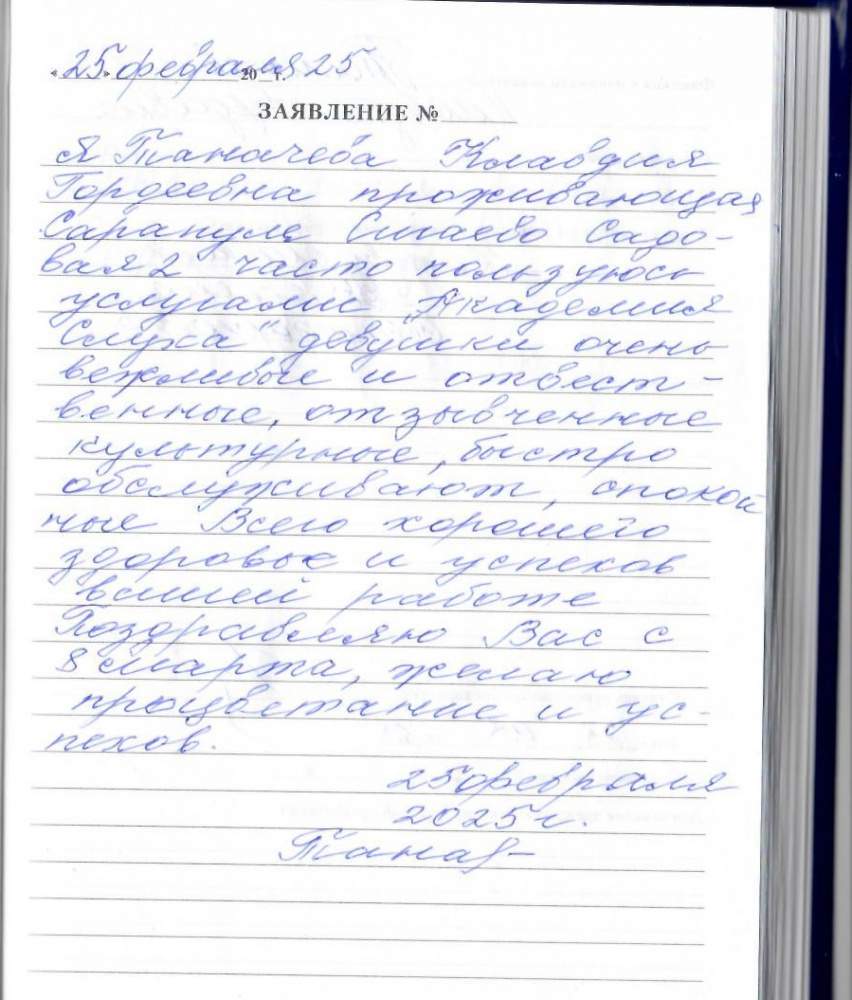 «25» февраля 20 г. 25
ЗАЯВЛЕНИЕ №
Я Таначева Клавдия
Гордеевна проживающая
Сарапуле Сигаево Садо-
вая 2 часто пользуюсь
услугами „Академия
Слуха" девушки очень
вежливые и ответст-
венные, отзывченные
культурные, быстро
обслуживают, спокой
ные Всего хорошего
здоровье и успехов
вашей работе
Поздравляю Вас с
8 марта, желаю
процветание и ус-
пехов.
25 февраля
2025 г.